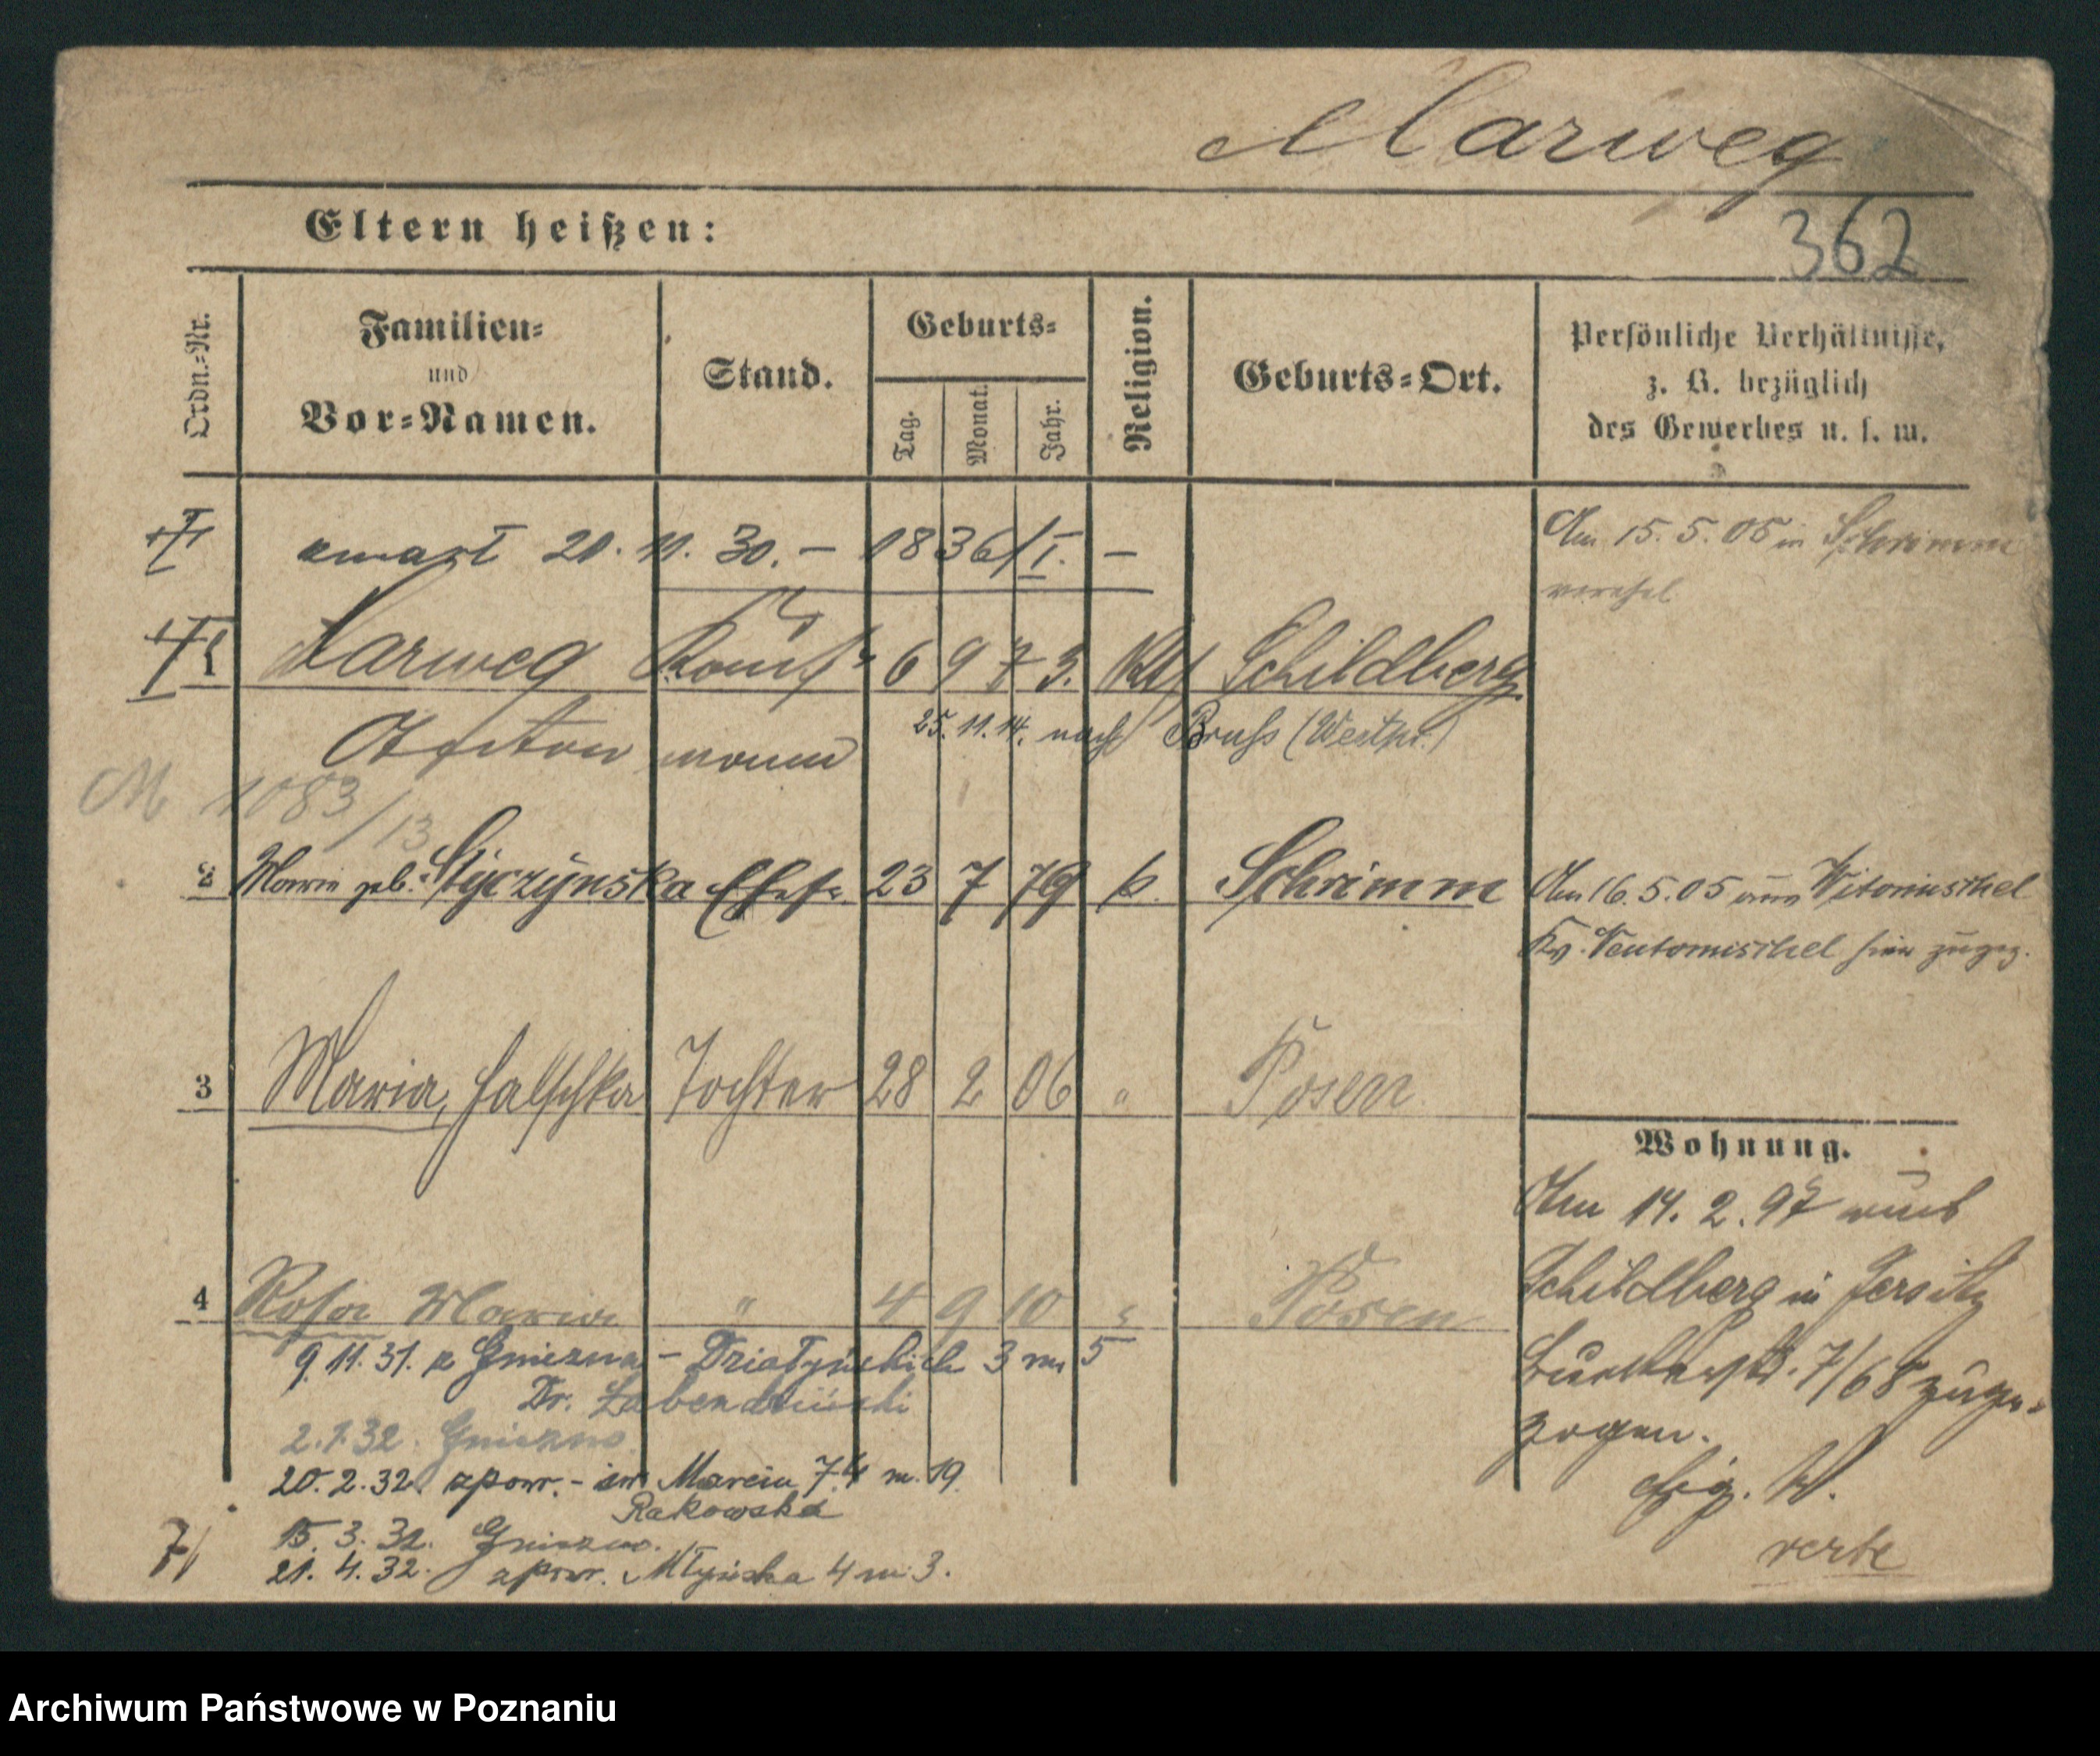 Marweg
Eltern heißen:
362
Ordn.-Nr.
Familien-
und
Vor-Namen.
Stand.
Geburts-
Tag.
Monat.
Jahr.
Religion.
Geburts-Ort.
Persönliche Verhältnisse,
z. B. bezüglich
des Gewerbes u. s. w.
zmarł 20. 11. 30. – 1836/I. –
Am 15. 5. 05 in Schrimm
verehel
Marweg Kauf- 6 9 73. Kth Schildberg
Anton mann 25. 11. 14. nach Bruss (Westpr.)
M 1083/13
2 Marie geb. Styczynska Ehefr. 23 7 79 k. Schrimm
Am 16. 5. 05 aus Witomischel
Kr. Neutomischel hier zugez.
3 Maria, Tochter 28 2 06 " Posen
Wohnung.
Am 14. 2. 97 aus
Schildberg in Jersitz
7/68 zuge-
zogen.
4 Rosa Maria " 4 9 10 " Posen
9. 11. 31. z Gniezna – Działyńskich 3 m 5
Dr.
2. 1. 32. Gniezno
20. 2. 32. zpowr. – św. Marcin 74 m. 19.
Rakowska
15. 3. 32. Gniezno.
21. 4. 32. zpowr. Młyńska 4 m. 3.
verte